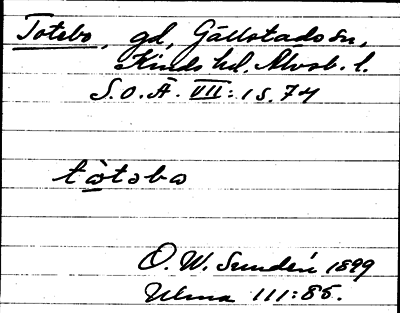 Totebo, gd, Gällstads sn,
Kinds hd. Älvsb. l.
S.O.Ä. VII:1 s. 74
tòtebo
O. W. Sundén 1899
Ulma 111:85.